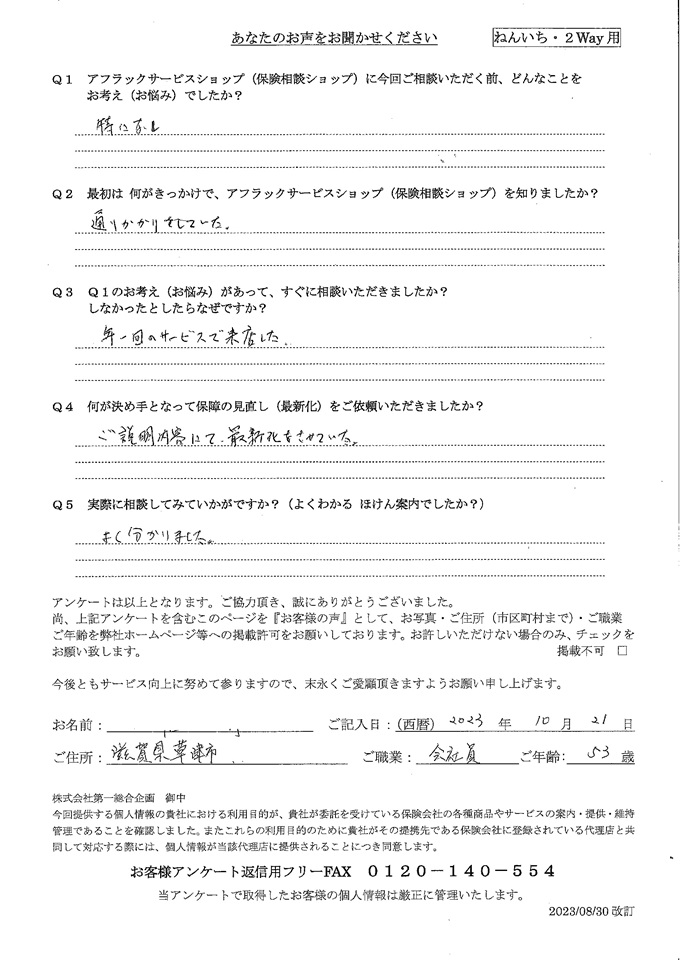 あなたのお声をお聞かせください
ねんいち・２Way用
Ｑ１ アフラックサービスショップ（保険相談ショップ）に今回ご相談いただく前、どんなことを
お考え（お悩み）でしたか？
特になし
Ｑ２ 最初は 何がきっかけで、アフラックサービスショップ（保険相談ショップ）を知りましたか？
通りかかりをしていた。
Ｑ３ Ｑ１のお考え（お悩み）があって、すぐに相談いただきましたか？
しなかったとしたらなぜですか？
年一回のサービスで来店した.
Ｑ４ 何が決め手となって保障の見直し（最新化）をご依頼いただきましたか？
ご説明内容にて、最新化をさせていた。
Ｑ５ 実際に相談してみていかがですか？（よくわかる ほけん案内でしたか？）
よく分かりました。
アンケートは以上となります。ご協力頂き、誠にありがとうございました。
尚、上記アンケートを含むこのページを『お客様の声』として、お写真・ご住所（市区町村まで）・ご職業
ご年齢を弊社ホームページ等への掲載許可をお願いしております。お許しいただけない場合のみ、チェックを
お願い致します。 掲載不可 □
今後ともサービス向上に努めて参りますので、末永くご愛顧頂きますようお願い申し上げます。
お名前： ご記入日：（西暦） 2023 年 10 月 21 日
ご住所： 滋賀県草津市 ご職業： 会社員 ご年齢： 53 歳
株式会社第一総合企画 御中
今回提供する個人情報の貴社における利用目的が、貴社が委託を受けている保険会社の各種商品やサービスの案内・提供・維持
管理であることを確認しました。またこれらの利用目的のために貴社がその提携先である保険会社に登録されている代理店と共
同して対応する際には、個人情報が当該代理店に提供されることにつき同意します。
お客様アンケート返信用フリーFAX ０１２０－１４０－５５４
当アンケートで取得したお客様の個人情報は厳正に管理いたします。
2023/08/30 改訂